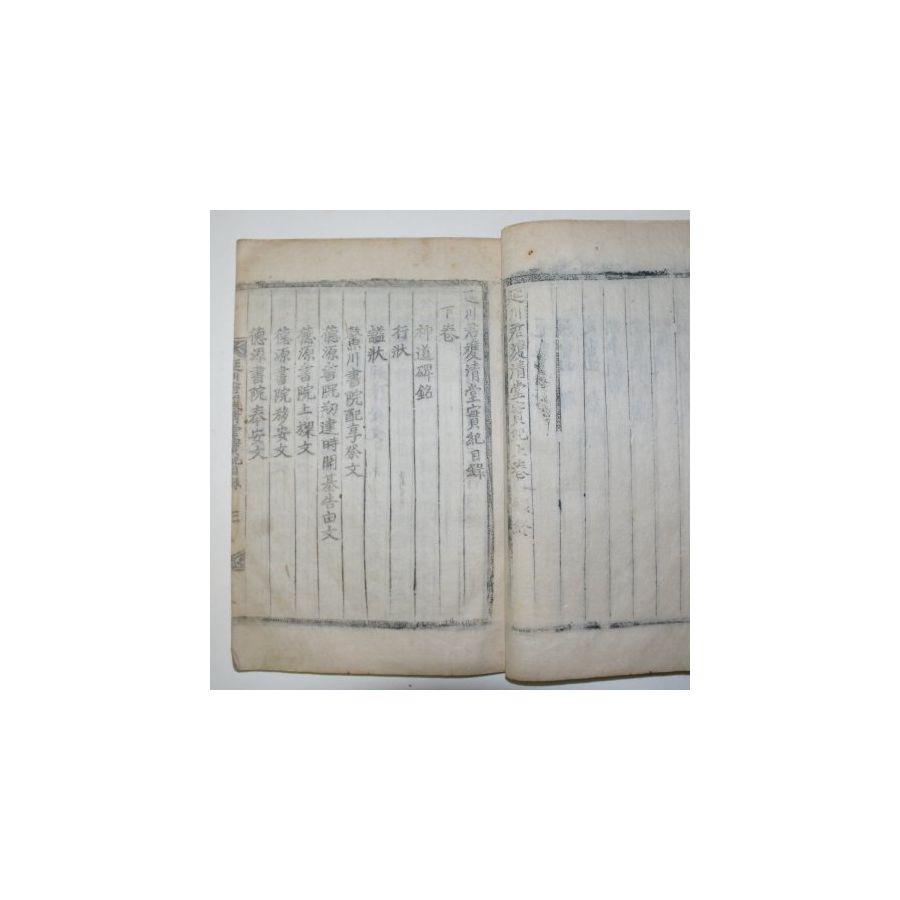 川君雙清堂實紀目錄
下卷
神道碑銘
行狀
諡狀
川書院配享祭文
德源書院刱建時開基告由文
德源書院上樑文
德源書院移安文
德源書院奉安文
川君雙清堂實紀上卷